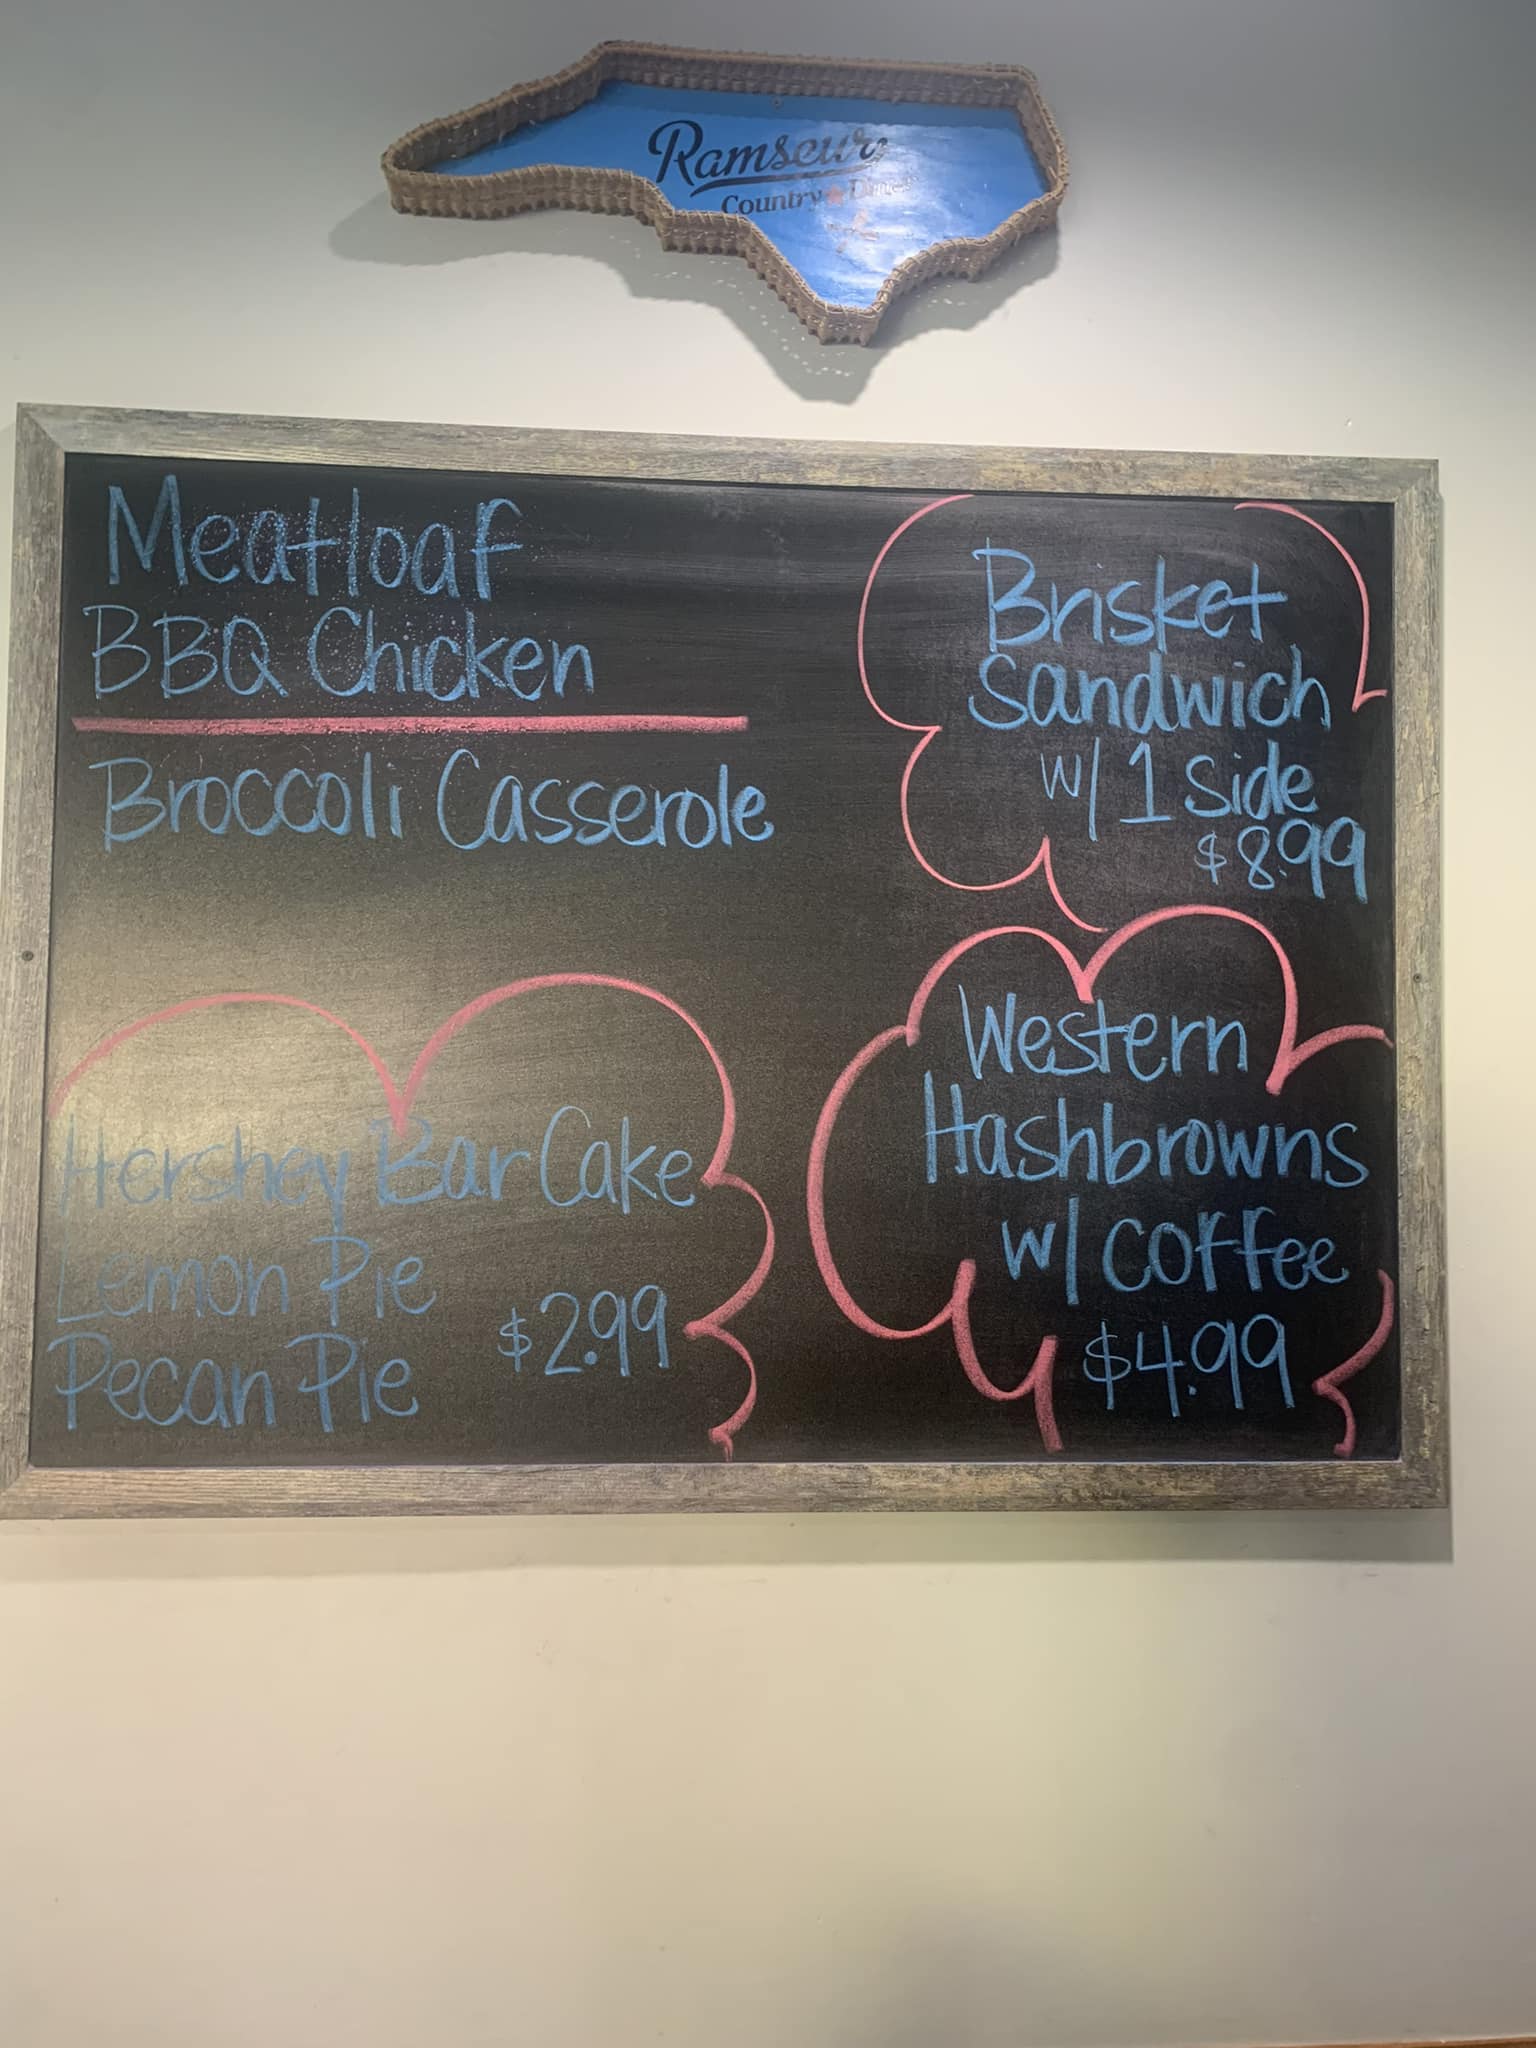 Ramseur
Country Diner
Meatloaf
BBQ Chicken
Broccoli Casserole
Hershey Bar Cake
Lemon Pie
Pecan Pie
$2.99
Brisket
Sandwich
w/ 1 side
$8.99
Western
Hashbrowns
w/ coffee
$4.99